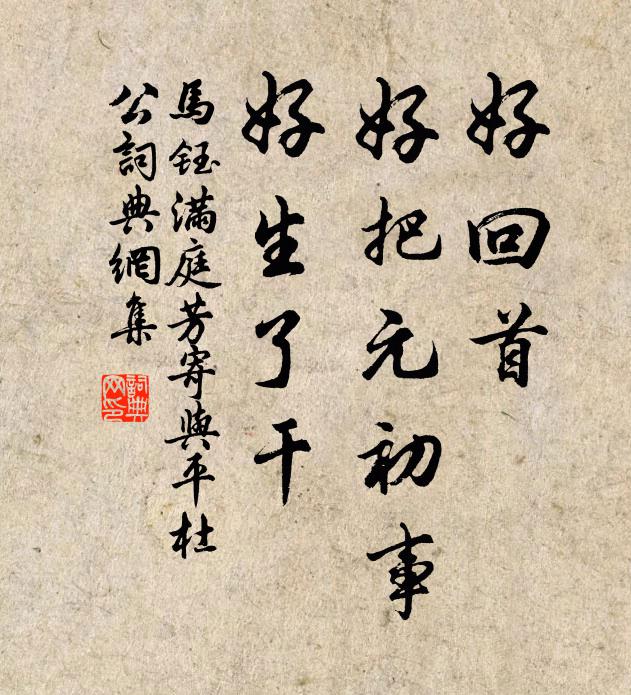 好回首
好把元初事
好生了干
馬鈺滿庭芳寄與平杜
公詞典網集
詞典網印